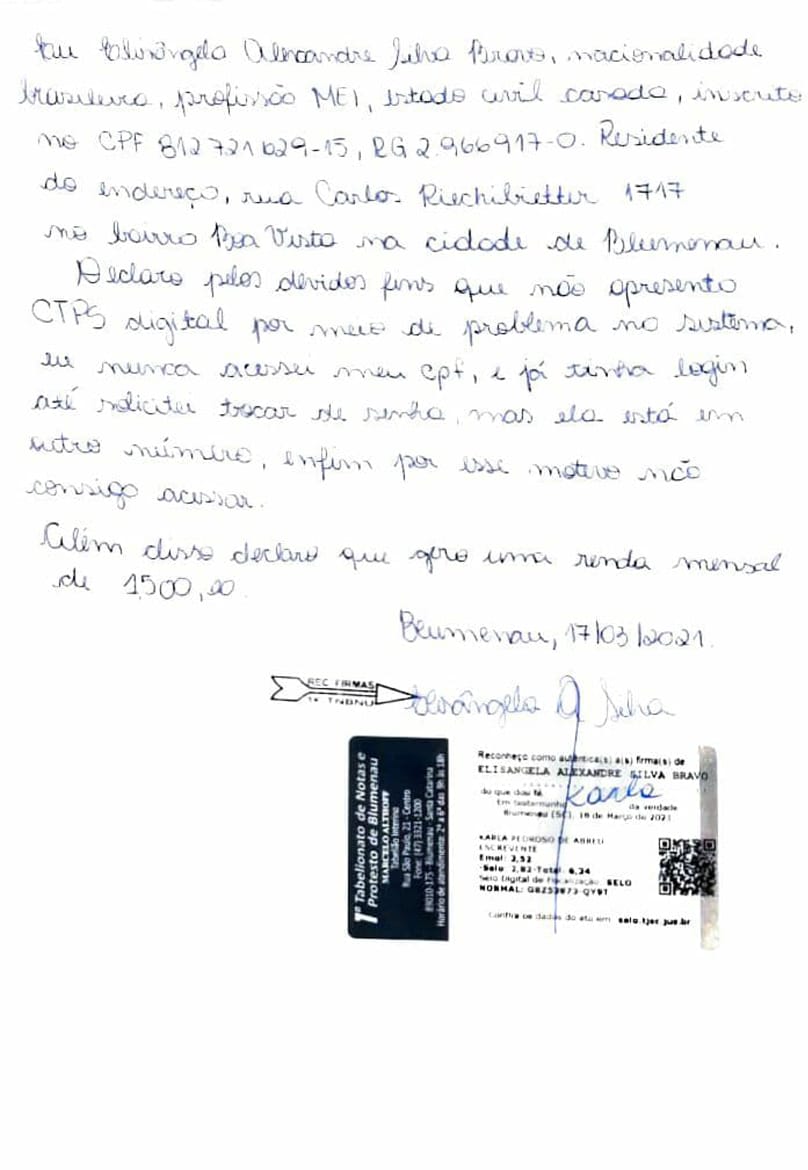 Eu Elisângela Alexandre Silva Bravo, nacionalidade
brasileira, profissão MEI, estado civil casada, inscrito
no CPF 812721629-15, RG 2.966917-0. Residente
do endereço, rua Carlos Riechilietter 1717
no bairro Boa Vista na cidade de Blumenau.
Declaro pelos devidos fins que não apresento
CTPS digital por meio de problema no sistema,
eu nunca acessei meu cpf, e já tinha login
até solicitei trocar de senha, mas ela está em
outro número, enfim por esse motivo não
consigo acessar.
Além disso declaro que gero uma renda mensal
de 1500,00.
Blumenau, 17/03/2021.
REC FIRMAS
1º TNBNU
Elisângela A Silva
1º Tabelionato de Notas e
Protesto de Blumenau
MARCELO ALTHOFF
Tabelião Interino
Rua São Paulo, 21 - Centro
Fone: (47) 3321-1200
89010-175 - Blumenau - Santa Catarina
Horário de atendimento: 2ª a 6ª das 9h às 18h
Reconheço como autêntica(s) a(s) firma(s) de
ELISANGELA ALEXANDRE SILVA BRAVO
do que dou fé.
Karla
Em testemunho da verdade
Blumenau (SC), 18 de Março de 2021
KARLA PEDROSO DE ABREU
ESCREVENTE
Emol: 3,52
Selo: 2,82-Total: 6,34
Selo Digital de Fiscalização: SELO
NORMAL: GBZ53873-QY9T
Confira os dados do ato em: selo.tjsc.jus.br